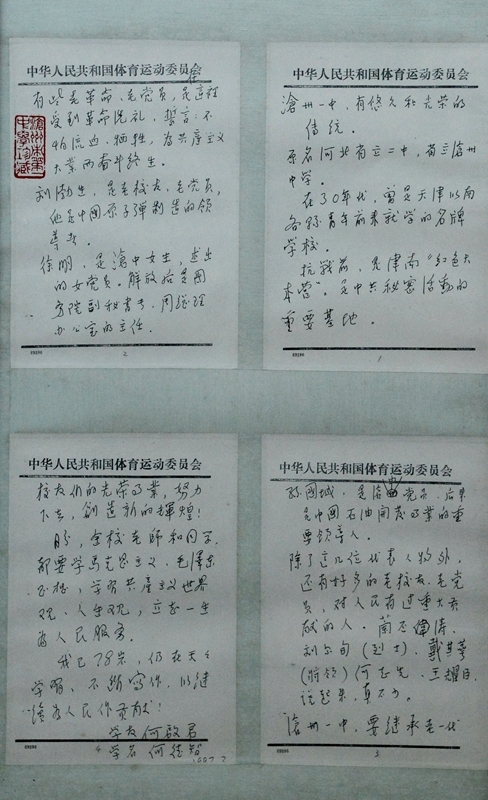 中华人民共和国体育运动委员会
滄州一中，有悠久和光荣的
传统。
原名河北省立二中，省立滄州
中学。
在30年代，曾是天津以南
各縣青年前来就学的名牌
学校。
抗战前，是津南“红色大
本营”。是中共秘密活動的
重要基地。
1
中华人民共和国体育运动委员会
老革命、老党员，在這裡
受到革命洗礼，誓言：不
怕流血、牺牲，为共產主义
大業而奋斗终生。
刘渤生，是老校友，老党员，
他是中國原子弹製造的领
导者。
徐明，是滄中女生，
的女党员。解放后是國
务院副秘書长、周總理
办公室的主任。
2
中华人民共和国体育运动委员会
國城，是滄中党员，后来
是中國石油開发事業的重
要领导人。
除了这几位代表人物外，
还有好多的老校友、老党
员，对人民有过重大贡
献的人。
刘 (烈士)、戴
(将领) 何 王耀
说起来，真不少。
滄州一中，要继承老一代
3
中华人民共和国体育运动委员会
校友们的光荣事業，努力
下去，創造新的輝煌！
盼，全校老师和同学，
都要学马克思主义、毛泽东
思想，学习共產主义世界
观、人生观，立志一生
为人民服务。
我已78岁，仍在天天
学習，不断寫作，以继
续为人民作贡献！
学友 何啟君
学名 何德智
1997.7